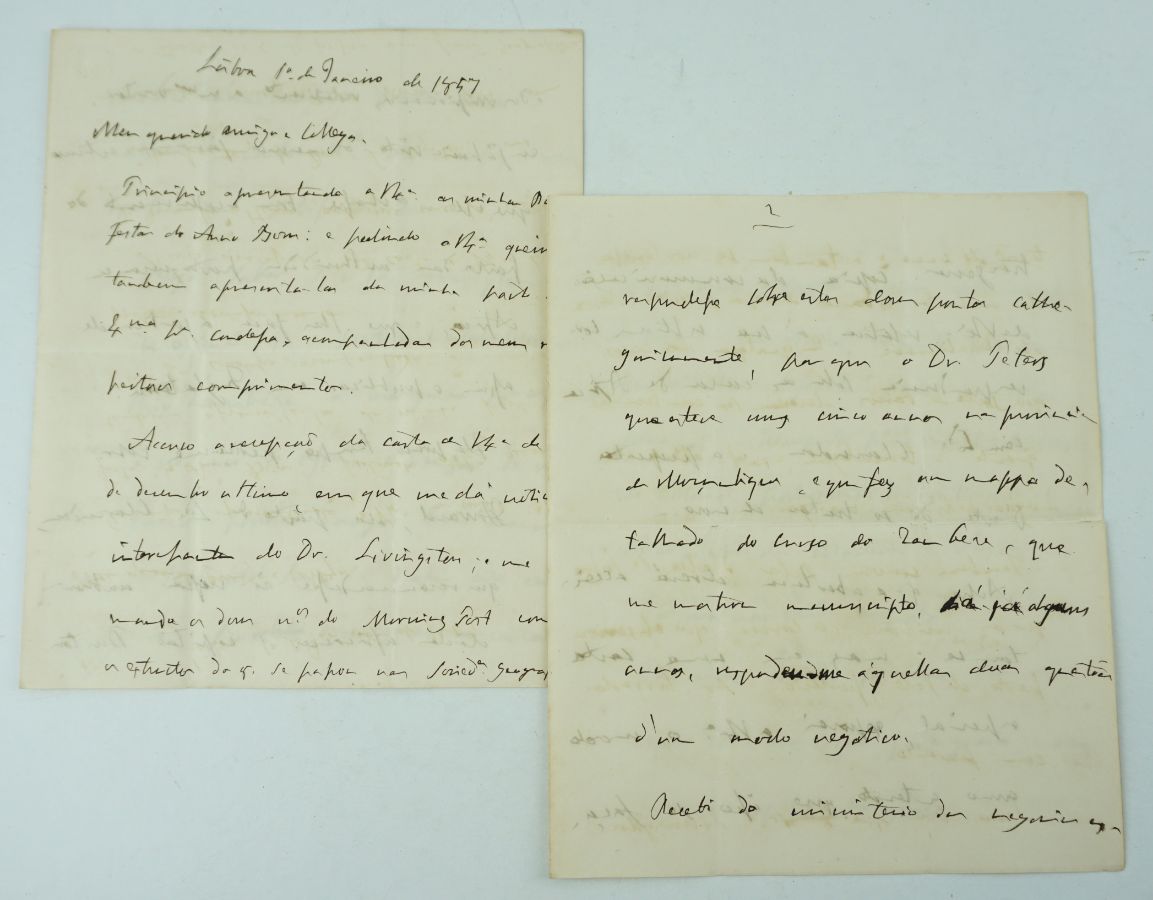 Lisboa 1º de Janeiro de 1857
Meu querido amigo e Collega.
Principio apresentando a V Exª as minhas Bo
Festas do Anno Bom: e pedindo a V Exª queira
tambem apresenta-las da minha parte
Exma Srª condessa, acompanhadas dos meus
peitosos comprimentos.
Accuso a recepção da carta de V Exª de
de dezembro ultimo, em que me dá notic
interessante do Dr. Livingston; e me
manda os dous nos do Morning Post com
os extractos do q. se passou na Socied.e Geograp
2
respondesse sobre estes dous pontos cathe-
goricamente, porque o Dr. Peters
que esteve uns cinco annos na provincia
de Moçambique, e que fez um mappa de-
talhado do curso do Zambeze, que
me mostrou manuscripto, há já alguns
annos, respondeu-me áquellas duas questões
d'um modo negativo.
Recebi do ministerio dos negocios es-